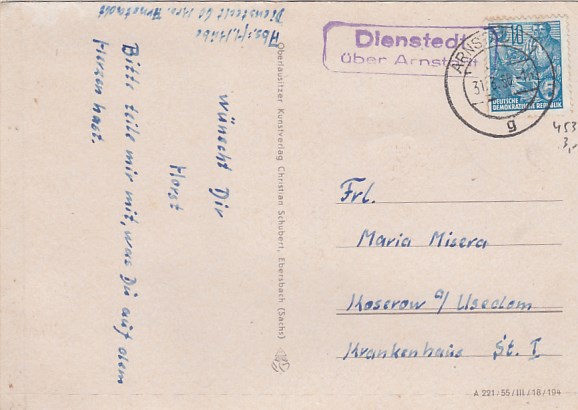 Abs.: H. Habe
Dienstedt 60 Krs. Arnstadt
Bitte teile mir mit, was Du auf dem
Herzen hast.
wünscht Dir
Horst
Oberlausitzer Kunstverlag Christian Schubert, Ebersbach (Sachs)
Dienstedt
über Arnst
ARNS
31.
g
10
DEUTSCHE
DEMOKRATISCHE REPUBLIK
453
3,-
Frl.
Maria Misera
Koserow a/ Usedom
Krankenhaus St. I
A 221 / 55 / III / 18 / 194